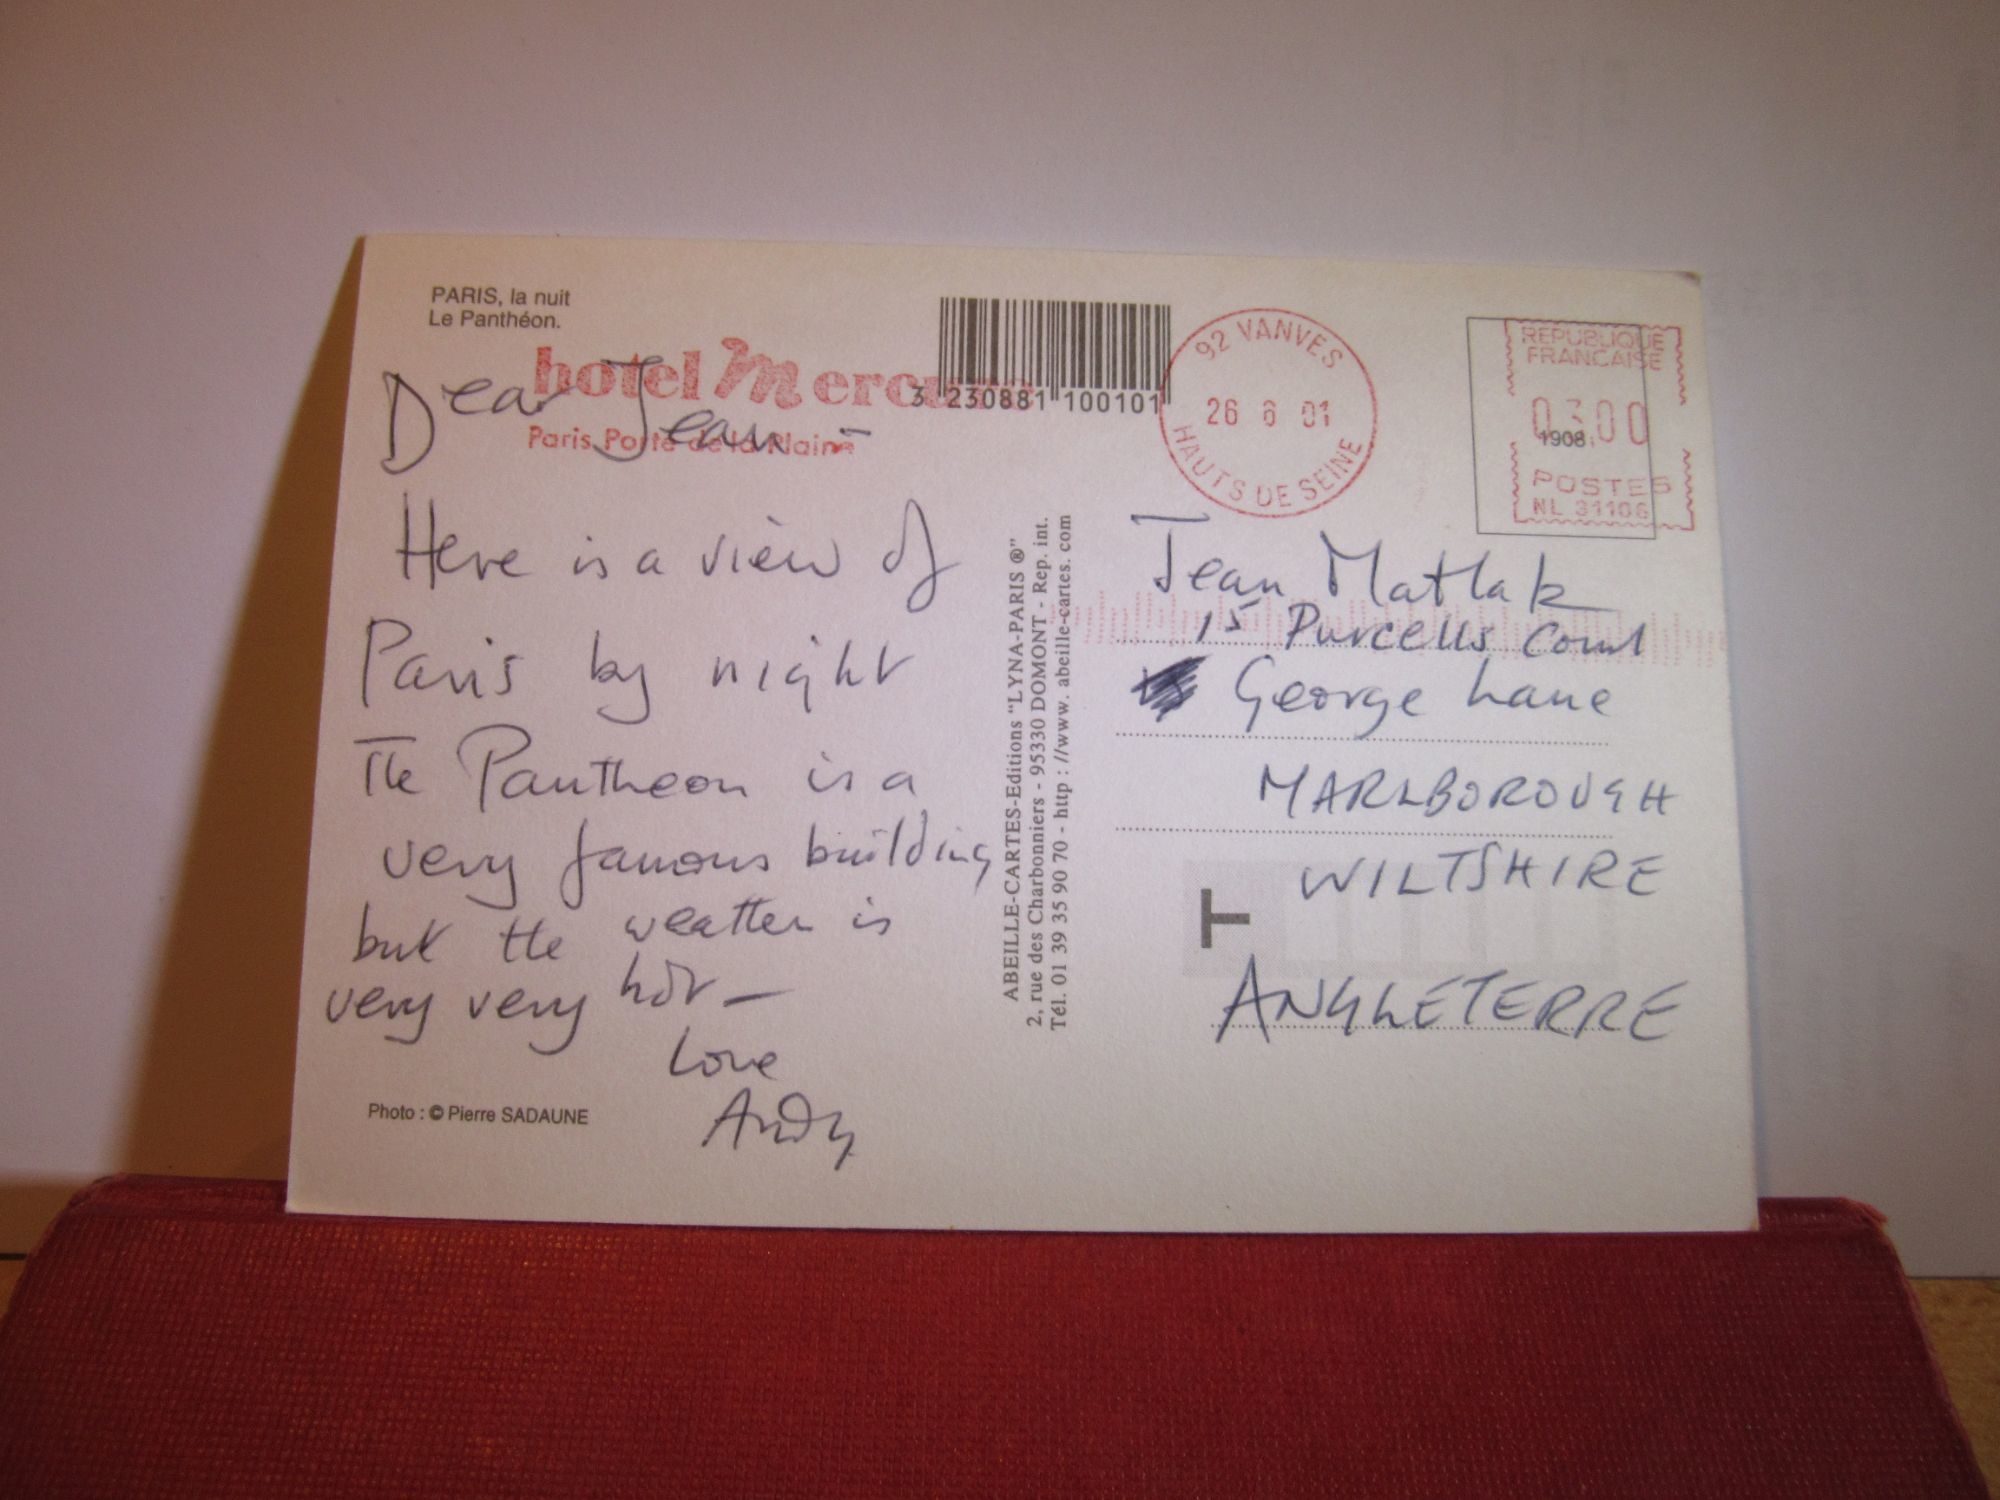 PARIS, la nuit
Le Panthéon.
hotel Mercure
Paris Porte de la Plaine
3 230881 100101
92 VANVES
26 6 01
HAUTS DE SEINE
REPUBLIQUE
FRANCAISE
0300
1908
POSTES
NL 31106
Dear Jean -
Here is a view of
Paris by night
The Pantheon is a
very famous building
but the weather is
very very hot —
Love
Andy
Photo : © Pierre SADAUNE
ABEILLE-CARTES-Editions "LYNA-PARIS ®"
2, rue des Charbonniers - 95330 DOMONT - Rep. int.
Tél. 01 39 35 90 70 - http : //www. abeille-cartes. com
Jean Matlak
15 Purcells Court
George Lane
MARLBOROUGH
WILTSHIRE
T
ANGLETERRE